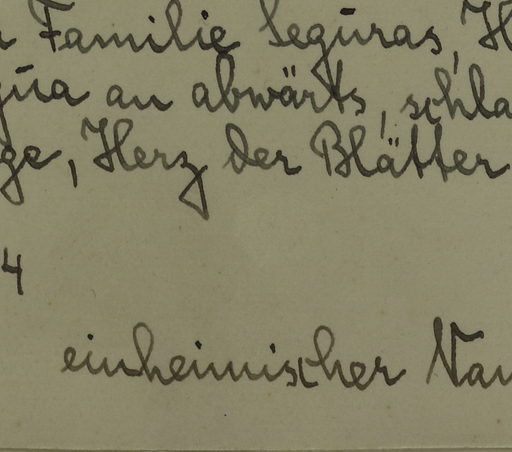 Familie Seguras, H
gua an abwärts, schla
ge, Herz der Blätter
4
einheimischer Nam